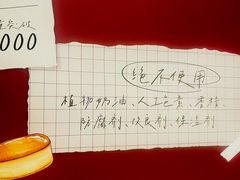 突破
000
绝不使用
植物奶油、人工色素、香精、
防腐剂、改良剂、保湿剂